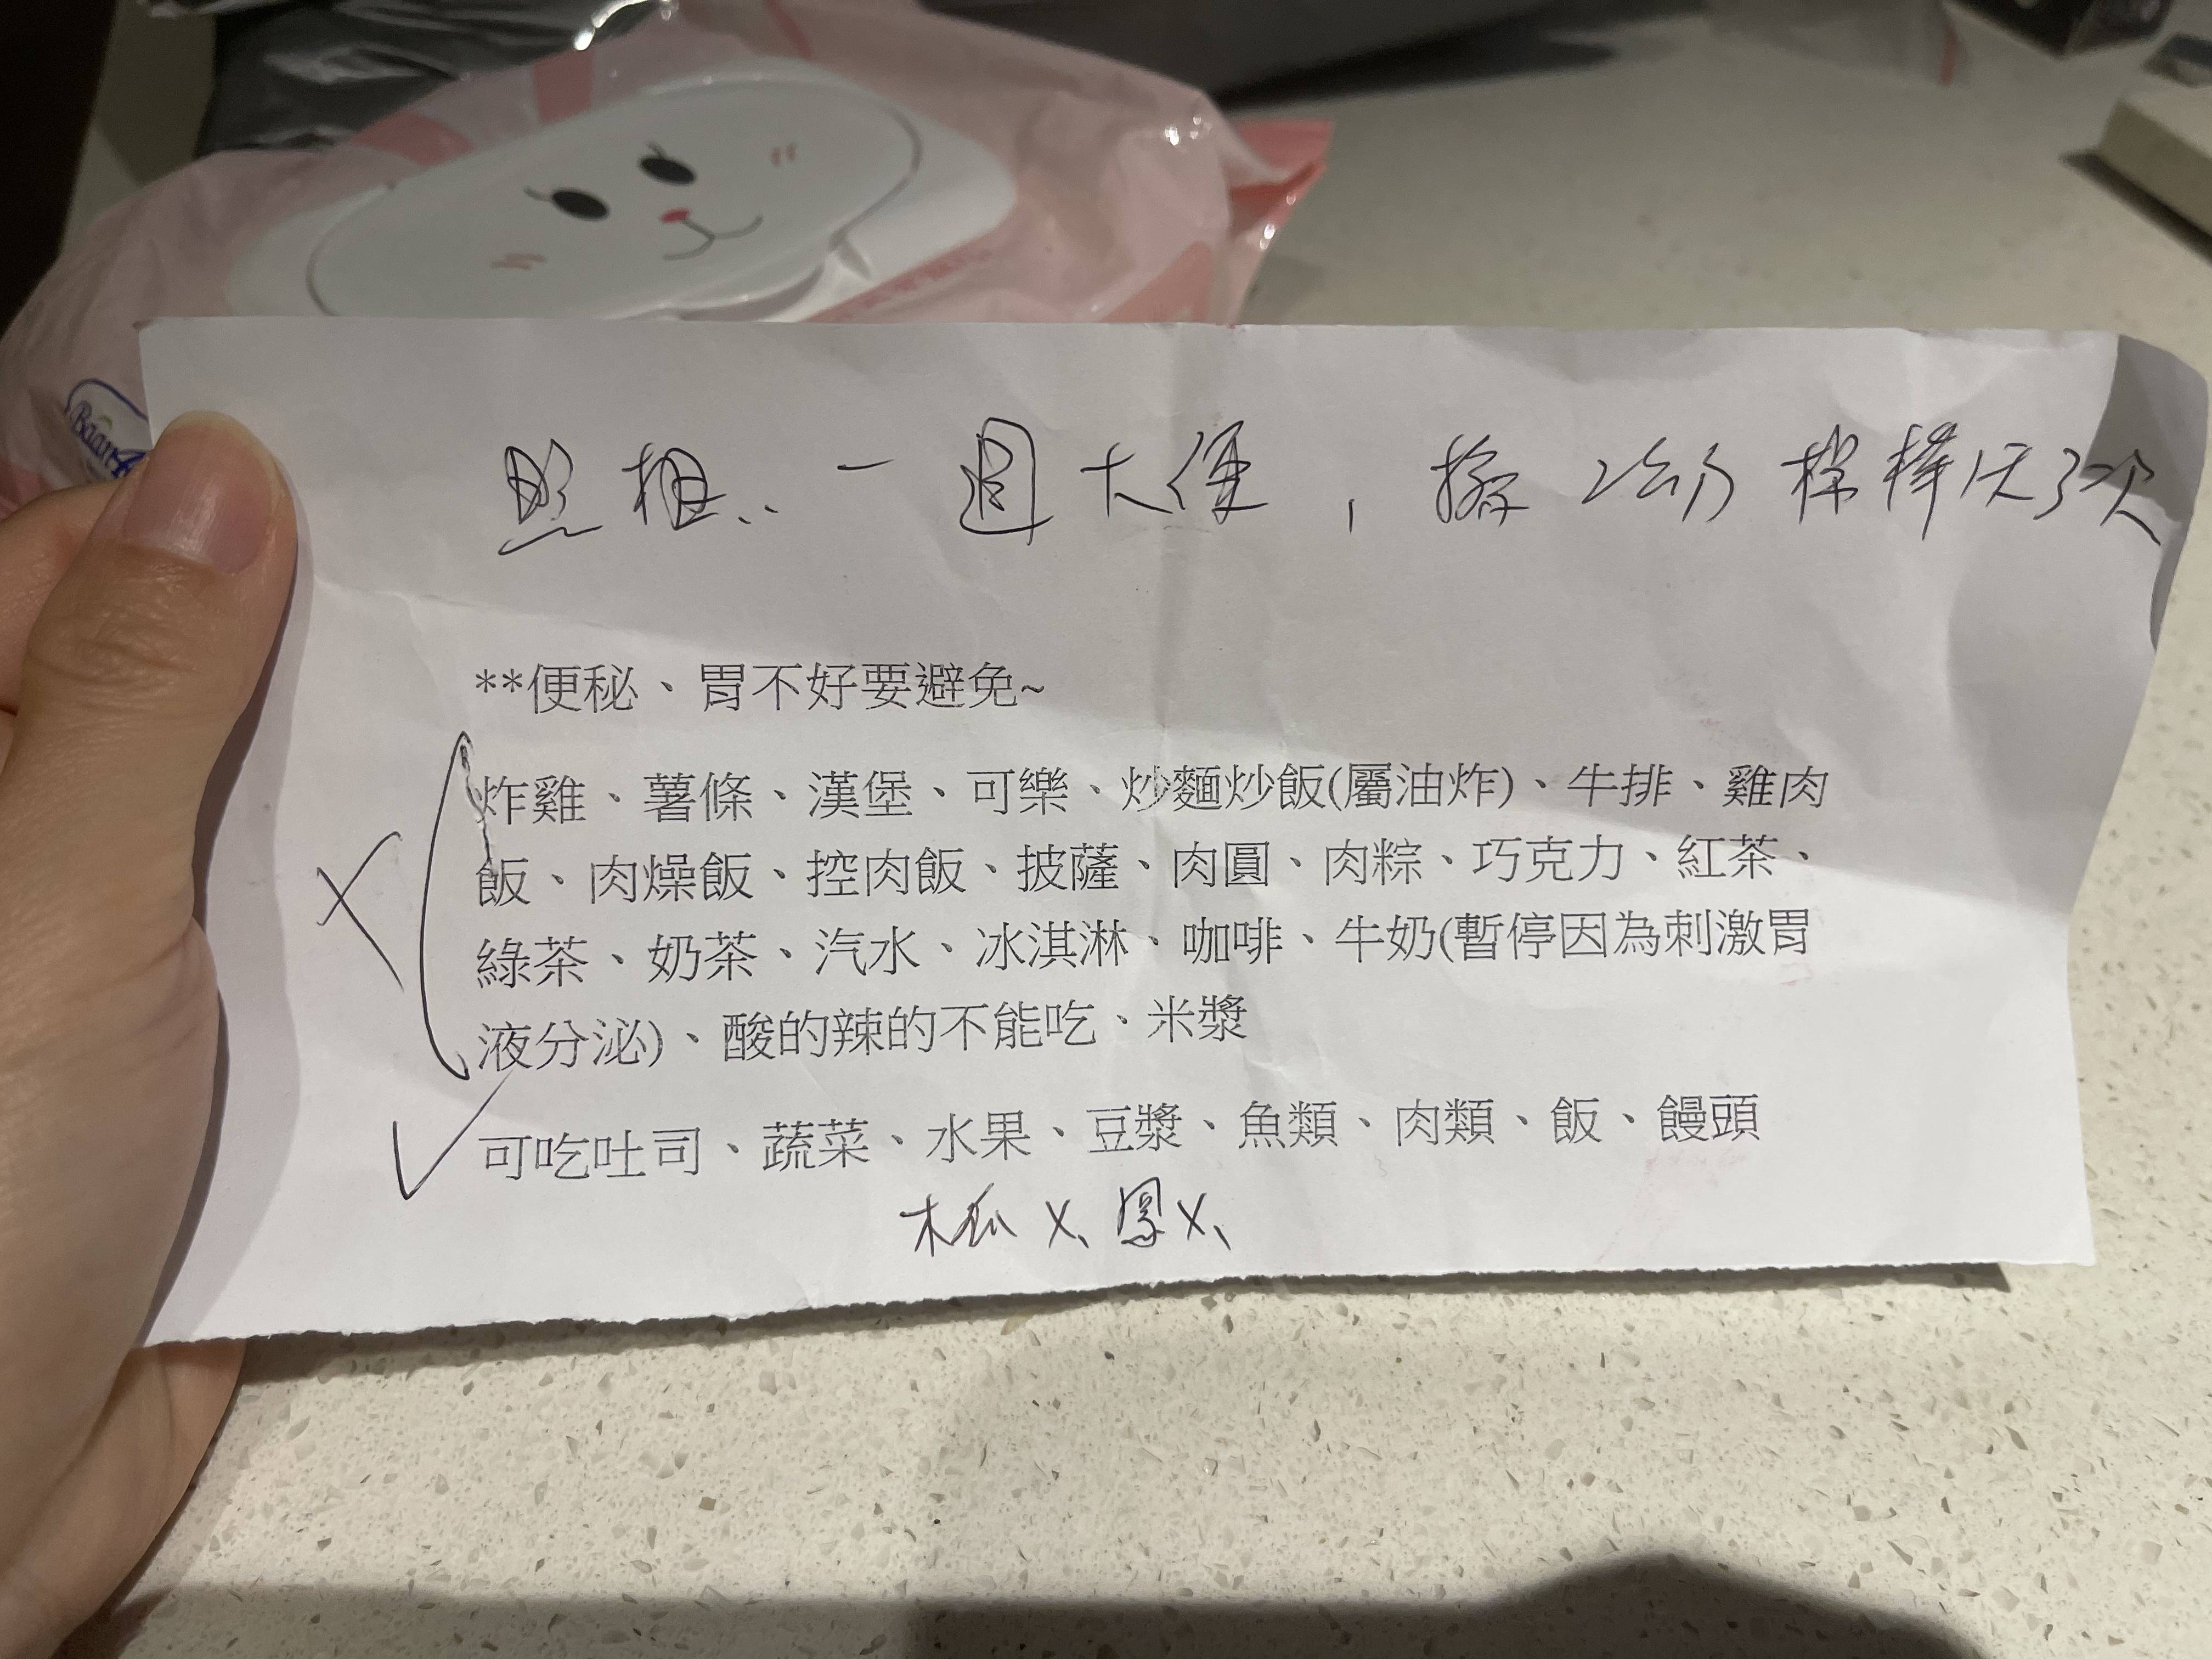 照相、一週大便,擦 2公分 棉棒1天3次
**便秘、胃不好要避免~
炸雞、薯條、漢堡、可樂、炒麵炒飯(屬油炸)、牛排、雞肉
飯、肉燥飯、控肉飯、披薩、肉圓、肉粽、巧克力、紅茶、
綠茶、奶茶、汽水、冰淇淋、咖啡、牛奶(暫停因為刺激胃
液分泌)、酸的辣的不能吃、米漿
可吃吐司、蔬菜、水果、豆漿、魚類、肉類、飯、饅頭
木瓜 X、鳳X、